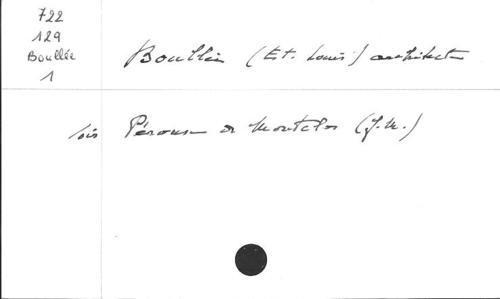 722
129
Boullée
1
Boullée (Et. Louis) architecte
Pérouse de Montclos (J.M.)